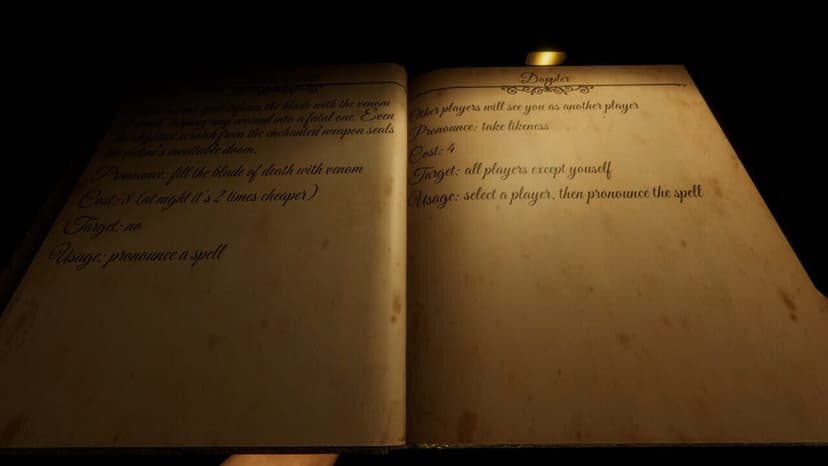 the blade with the venom
into a fatal one. Even
scratch from the enchanted weapon seals
inevitable doom.
Pronounce: fill the blade of death with venom
Cost: 8 (at night it's 2 times cheaper)
Target: no
Usage: pronounce a spell
Doppler
Other players will see you as another player
Pronounce: take likeness
Cost: 4
Target: all players except youself
Usage: select a player, then pronounce the spell